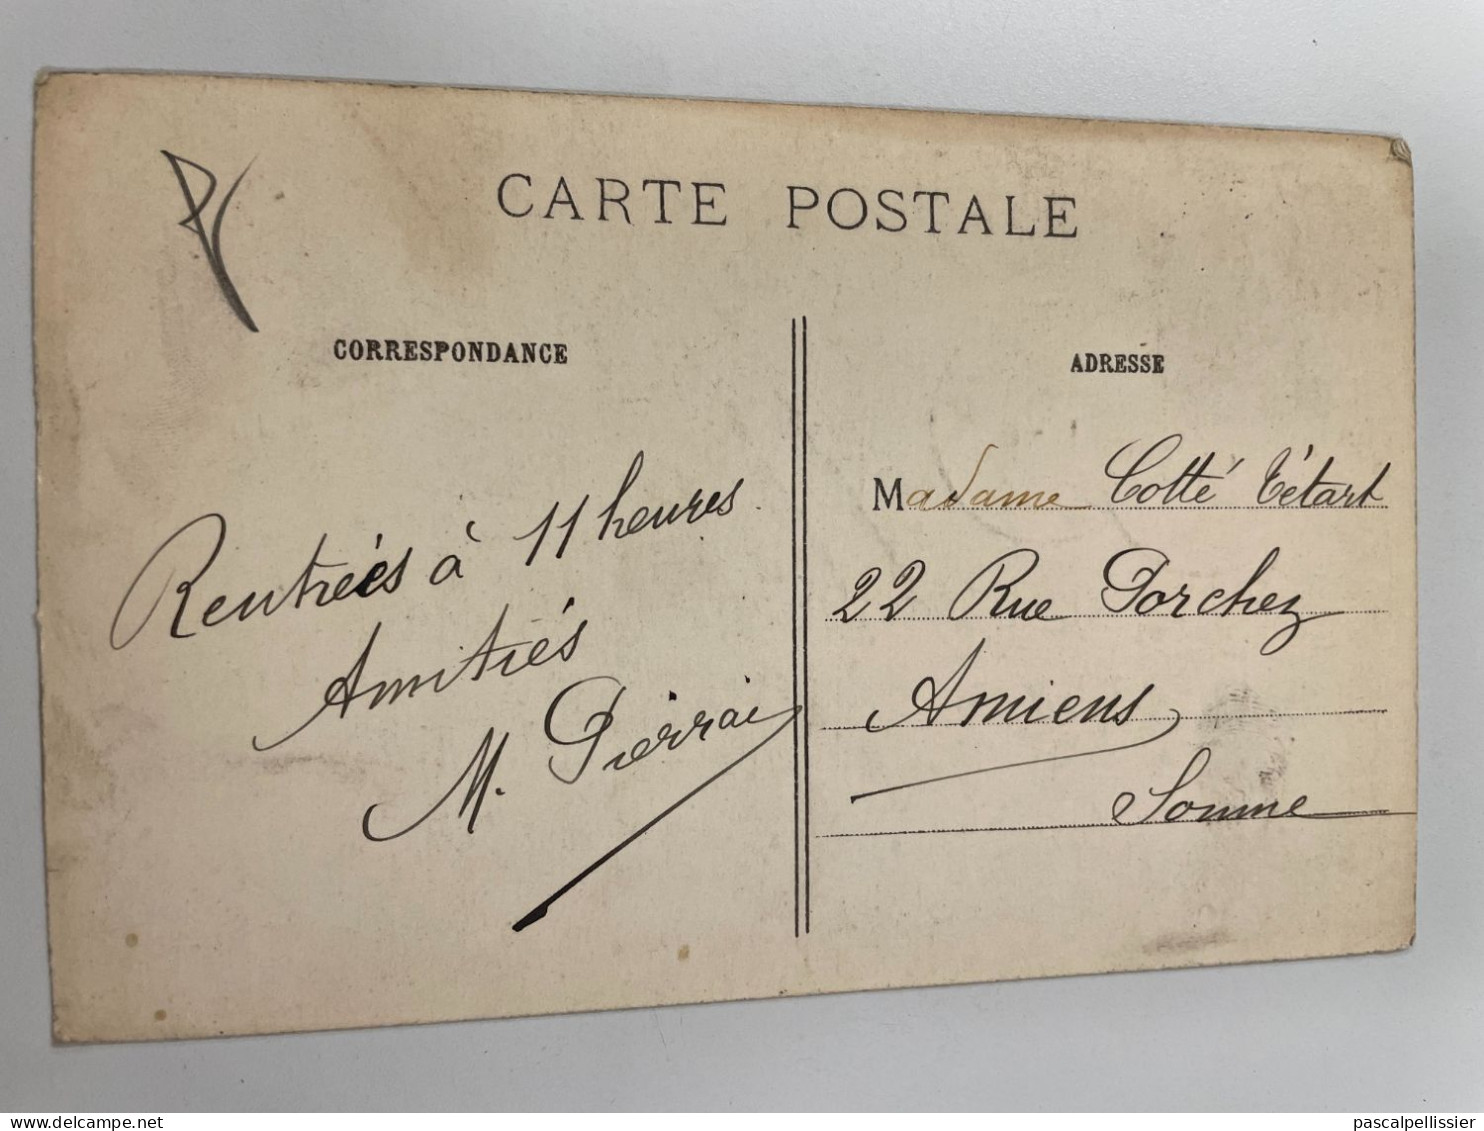 CARTE POSTALE
CORRESPONDANCE
Rentrées à 11 heures
Amitiés
M. Pierrai
ADRESSE
Madame Cotté Tétart
22 Rue Porchez
Amiens
Somme
delcampe.net
pascalpellissier